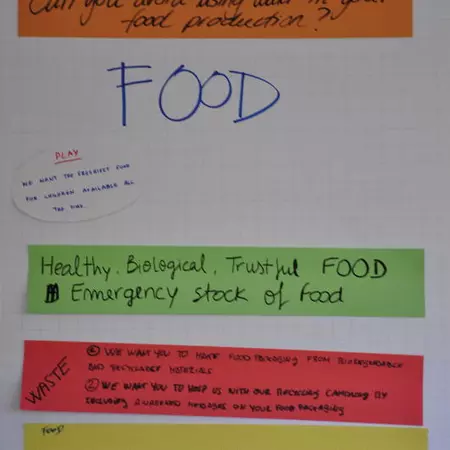 Can you avoid using in your
food production?
FOOD
PLAY
WE WANT THE FRESHEST FOOD
FOR CHILDREN AVAILABLE ALL
THE TIME.
Healthy, Biological, Trustful FOOD
Emergency stock of food
WASTE
① WE WANT YOU TO MAKE FOOD PACKAGING FROM BIODEGRADABLE
AND RECYCLABLE MATERIALS
② WE WANT YOU TO HELP US WITH OUR RECYCLING CAMPAIGN BY
INCLUDING AWARENESS MESSAGES ON YOUR FOOD PACKAGING
FOOD